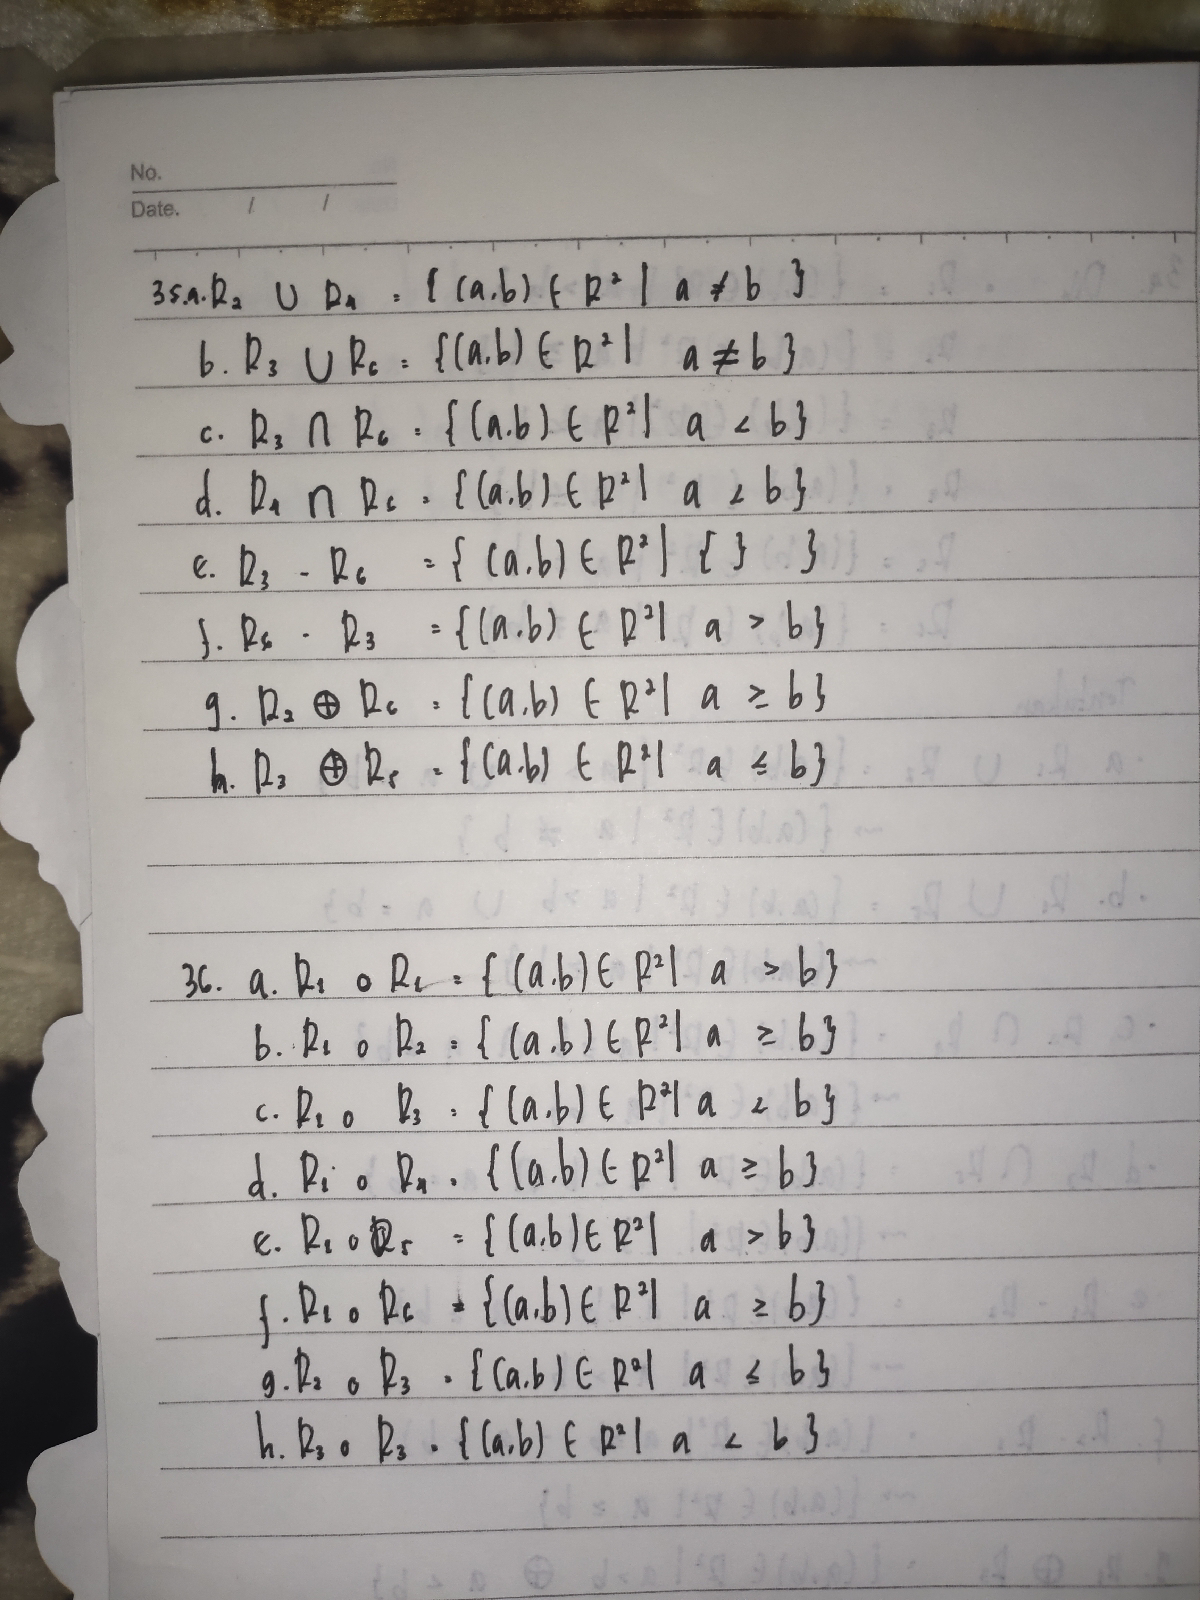 No.
Date. / /
35.a. R₂ ∪ R₄ = { (a,b) ∈ R² | a ≠ b }
b. R₃ ∪ R₆ = {(a,b) ∈ R² | a ≠ b}
c. R₃ ∩ R₆ = {(a,b) ∈ R² | a < b}
d. R₄ ∩ R₆ = {(a,b) ∈ R² | a < b}
e. R₃ - R₆ = { (a,b) ∈ R² | { } }
f. R₆ - R₃ = {(a,b) ∈ R² | a > b}
g. R₂ ⊕ R₆ = {(a,b) ∈ R² | a ≥ b}
h. R₃ ⊕ R₅ = {(a,b) ∈ R² | a ≤ b}
36. a. R₁ o R₁ = {(a,b) ∈ R² | a > b}
b. R₁ o R₂ = {(a,b) ∈ R² | a ≥ b}
c. R₁ o R₃ = {(a,b) ∈ R² | a < b}
d. R₁ o R₄ = {(a,b) ∈ R² | a ≥ b}
e. R₁ o R₅ = {(a,b) ∈ R² | a > b}
f. R₁ o R₆ = {(a,b) ∈ R² | a ≥ b}
g. R₂ o R₃ = {(a,b) ∈ R² | a ≤ b}
h. R₃ o R₃ = {(a,b) ∈ R² | a < b}